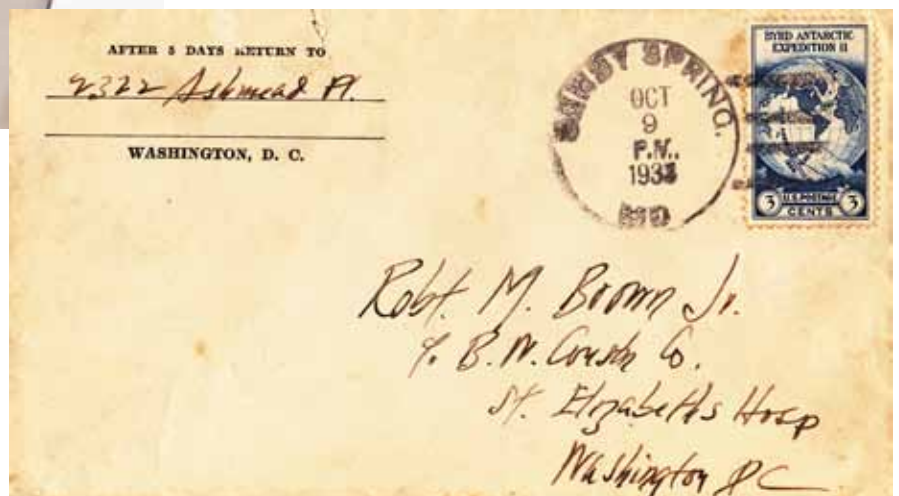 AFTER 5 DAYS RETURN TO
2322 Ashmead Pl.
WASHINGTON, D. C.
SANDY SPRING.
OCT
9
P.M.
1933
MD
BYRD ANTARCTIC
EXPEDITION II
3 U.S. POSTAGE 3
CENTS
Robt. M. Brown Jr.
℅ B.W. Co.
St. Elizabeths Hosp
Washington DC